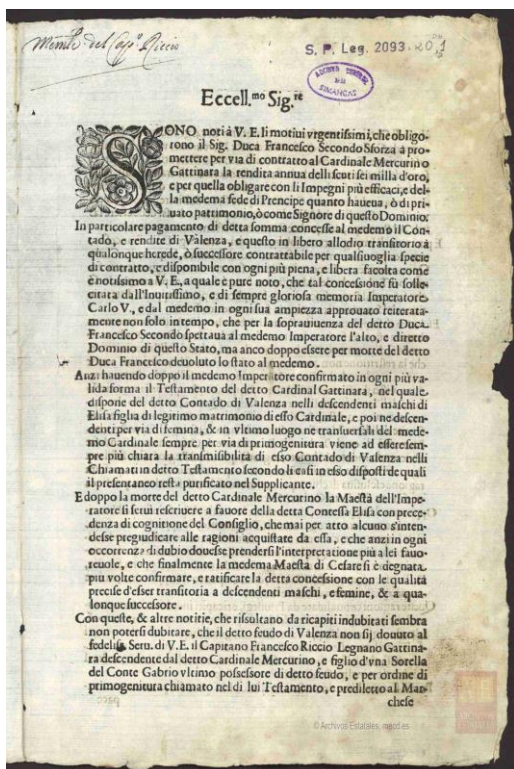 Memle del Capo Riccio
S. P. Leg. 2093.-20,1
ARCHIVO GENERAL
DE
SIMANCAS
Eccell.mo Sig.re
SONO noti à V. E. li motiui vrgentissimi, che obligo-
rono il Sig. Duca Francesco Secondo Sforza a pro-
mettere per via di contratto al Cardinale Mercurino
Gattinara la rendita annua delli scuti sei milla d'oro,
e per quella obligare con li Impegni più efficaci, e del-
la medema fede di Prencipe quanto haueua, ò di pri-
uato patrimonio, ò come Signore di questo Dominio.
In particolare pagamento di detta somma concesse al medemo il Con-
tado, e rendite di Valenza, e questo in libero allodio transitorio à
qualonque herede, ò successore contrattabile per qualsiuoglia specie
di contratto, e disponibile con ogni più piena, e libera facolta come
è notissimo a V. E., a quale è pure noto, che tal concessione fù solle-
citata dall'Inuittissimo, e di sempre gloriosa memoria Imperatore
Carlo V., e dal medemo in ogni sua ampiezza approuato reiterata-
mente non solo in tempo, che per la soprauiuenza del detto Duca
Francesco Secondo spettaua al medemo Imperatore l'alto, e diretto
Dominio di questo Stato, ma anco doppo essere per morte del detto
Duca Francesco deuoluto lo stato al medemo.
Anzi hauendo doppo il medemo Imperatore confirmato in ogni più va-
lida forma il Testamento del detto Cardinal Gattinara, nel quale
dispone del detto Contado di Valenza nelli descendenti maschi di
Elisa figlia di legitimo matrimonio di esso Cardinale, e poi ne descen-
denti per via di femina, & in vltimo luogo ne transuersali del mede-
mo Cardinale sempre per via di primogenitura viene ad essere sem-
pre più chiara la transmisibilità di esso Contado di Valenza nelli
Chiamati in detto Testamento secondo li casi in esso disposti de quali
il presentaneo resta purificato nel Supplicante.
E doppo la morte del detto Cardinale Mercurino la Maestà dell'Impe-
ratore si seruì rescriuere a fauore della detta Contessa Elisa con prece-
denza di cognitione del Consiglio, che mai per atto alcuno s'inten-
desse pregiudicare alle ragioni acquistate da essa, e che anzi in ogni
occorrenza di dubio douesse prendersi l'interpretatione più a lei fauo-
reuole, e che finalmente la medema Maestà di Cesare si è degnata
più volte confirmare, e ratificare la detta concessione con le qualità
precise d'esser transitoria a descendenti maschi, e femine, & a qua-
lonque successore.
Con queste, & altre notitie, che risultano da ricapiti indubitati sembra
non potersi dubitare, che il detto feudo di Valenza non sij douuto al
fedeliss. Seru. di V. E. il Capitano Francesco Riccio Legnano Gattina-
ra descendente dal detto Cardinale Mercurino, e figlio d'vna Sorella
del Conte Gabrio vltimo possessore di detto feudo, e per ordine di
primogenitura chiamato nel di lui Testamento, e prediletto al Mar-
chese
© Archivos Estatales, mecd.es